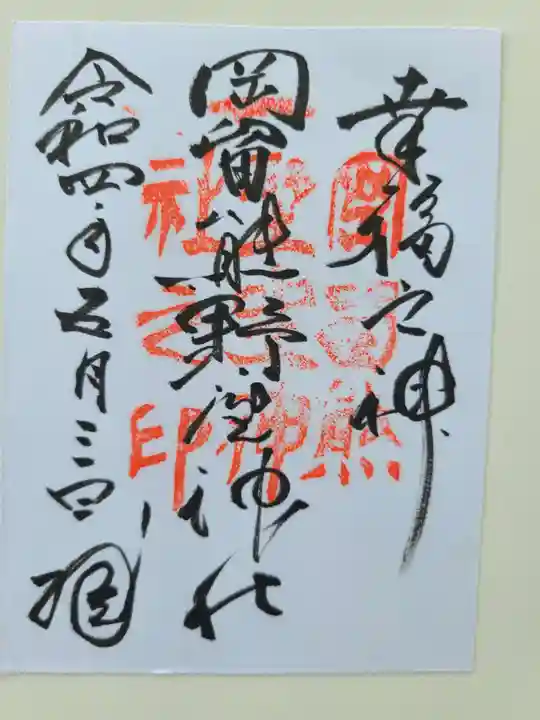 幸福之神
岡留熊野座神社
令和四年五月三日
岡留熊
野座神
社之印